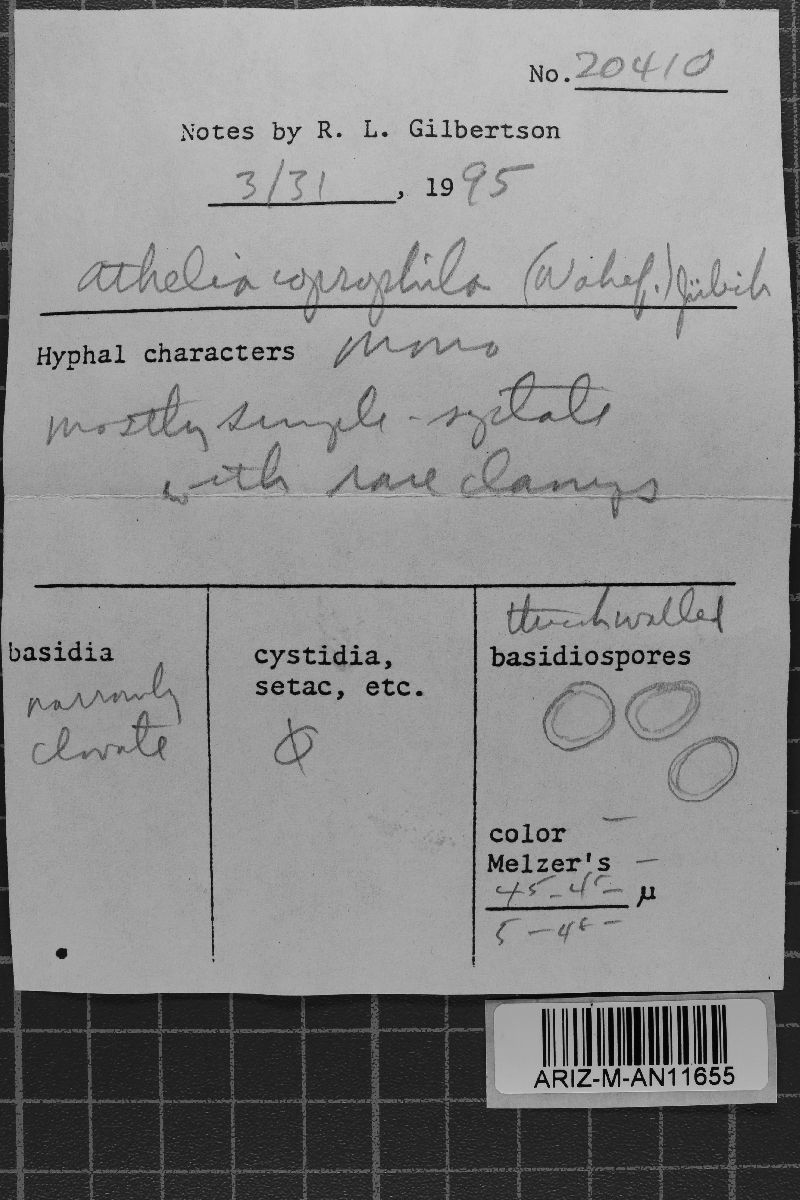 No. 20410
Notes by R. L. Gilbertson
3/31, 1995
Athelia coprophila (Wakef.) Jülich
Hyphal characters mono
mostly simple-septate
with rare clamps
thick walled
basidia
narrowly
clavate
cystidia,
setac, etc.
ϕ
basidiospores
color –
Melzer's –
45-45- μ
5-45-
ARIZ-M-AN11655